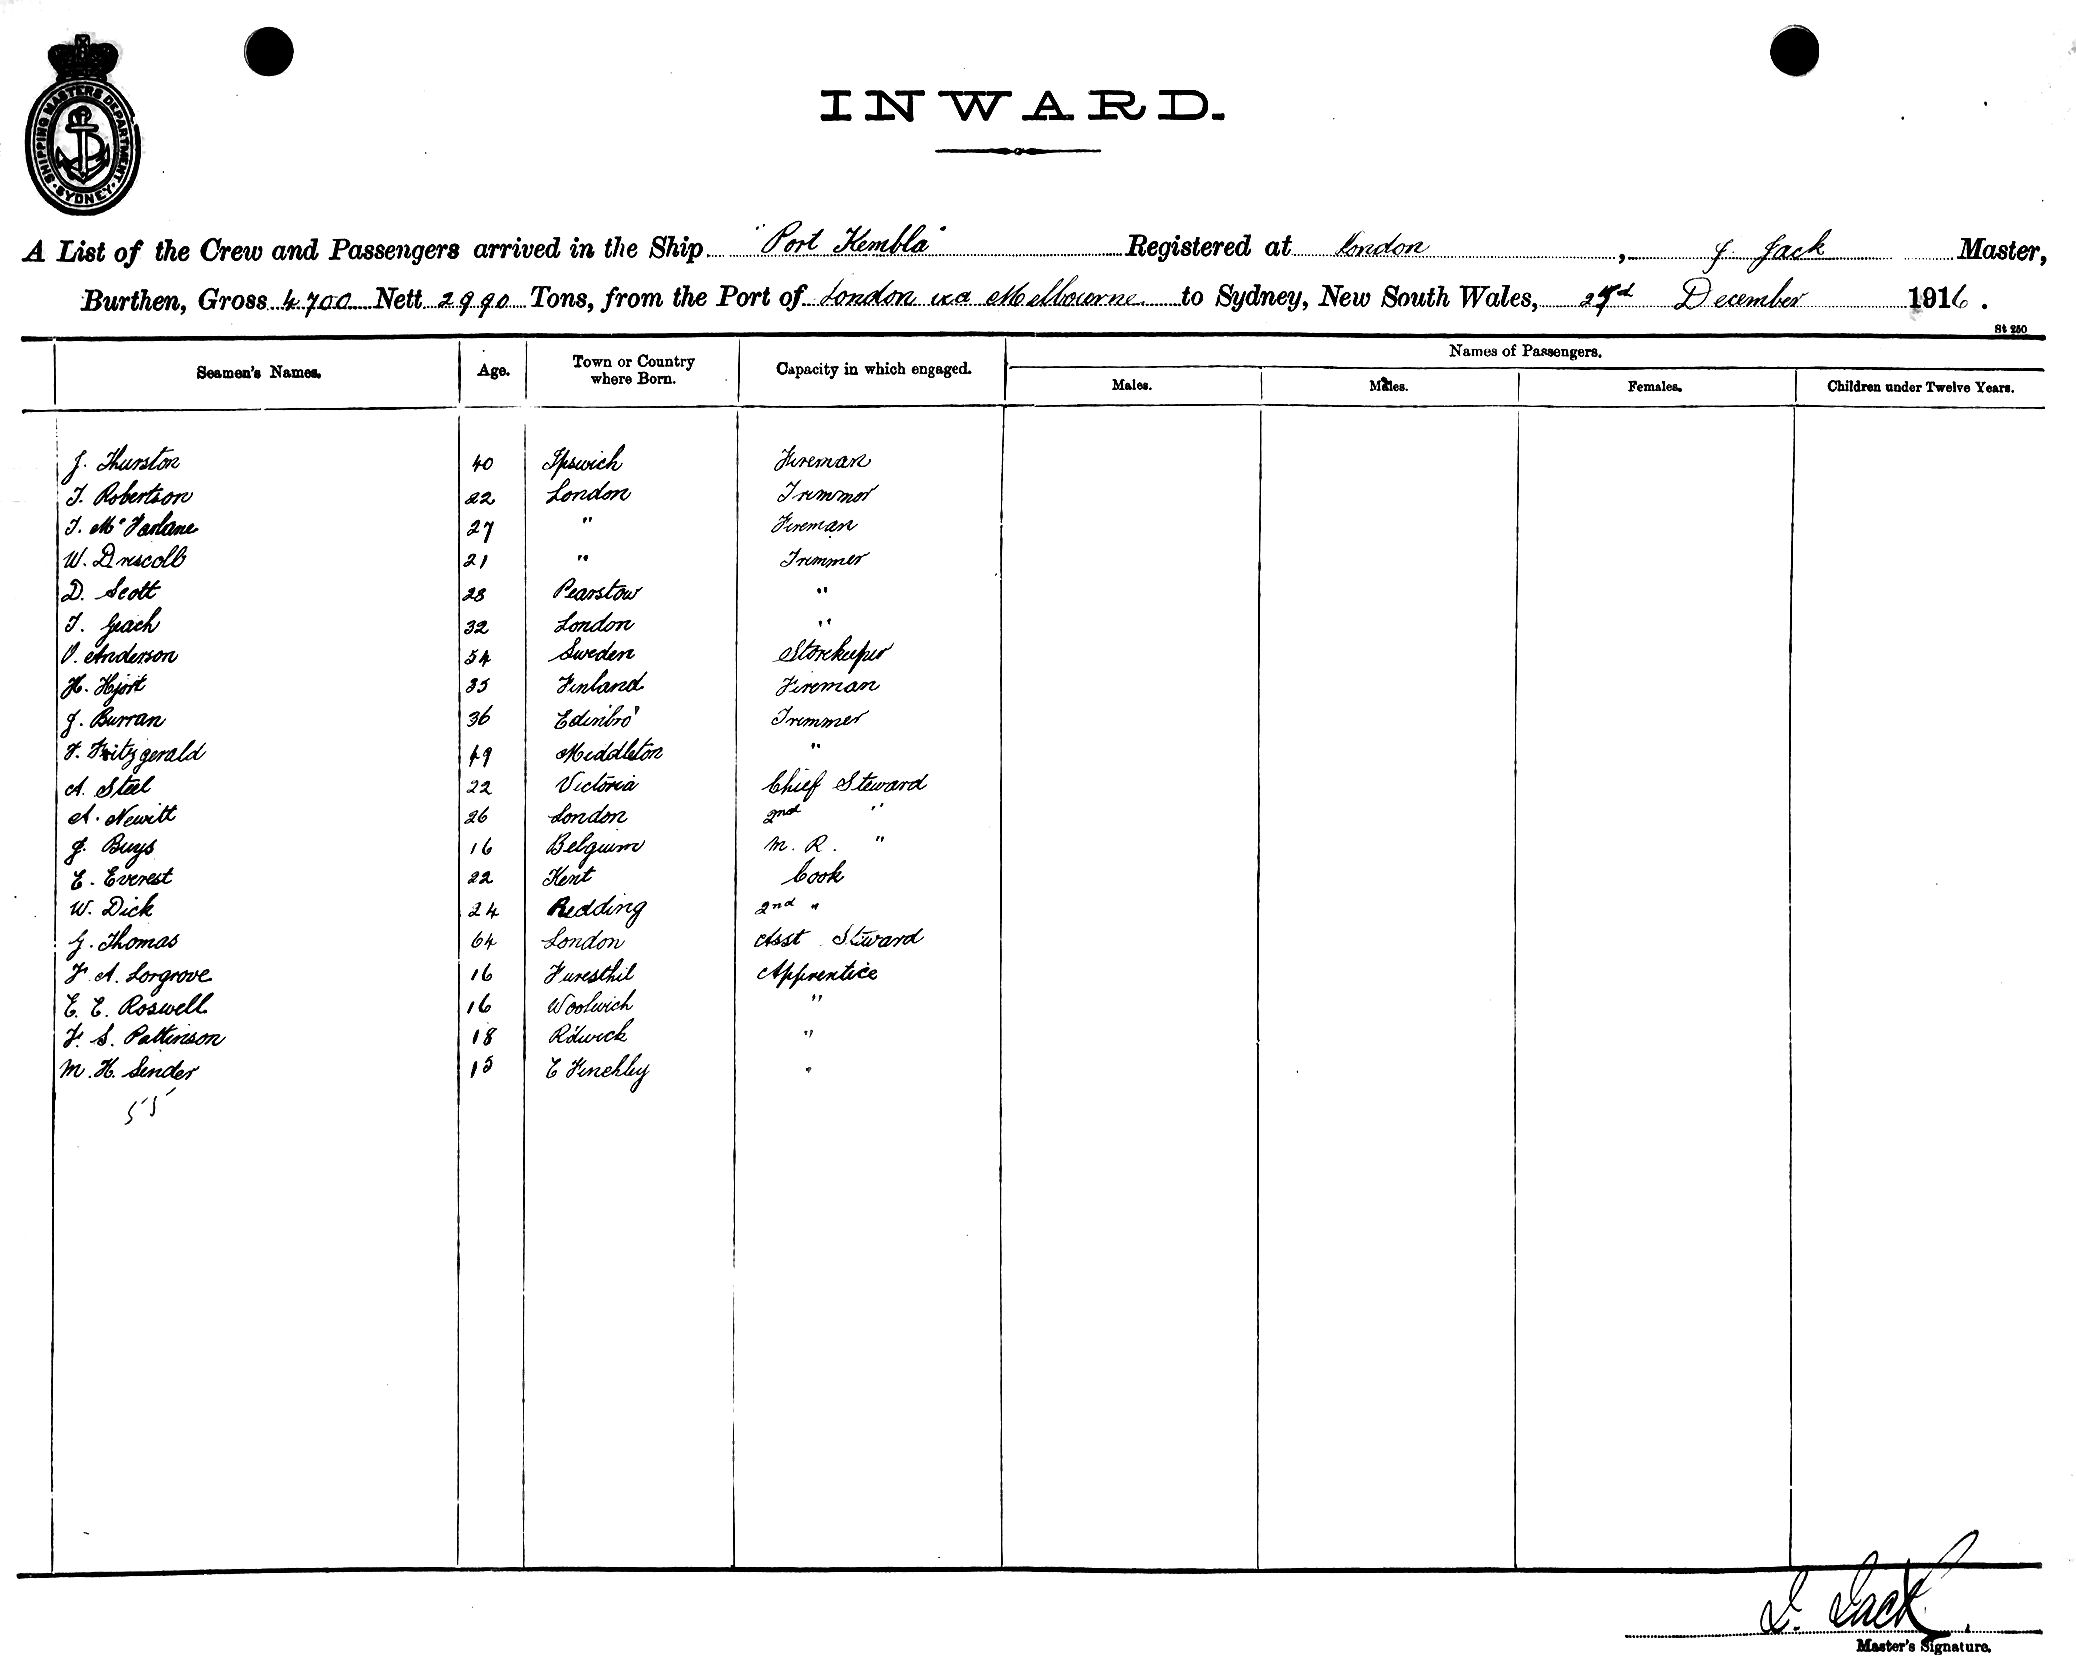 SHIPPING MASTERS DEPARTMENT
SYDNEY
INWARD.
A List of the Crew and Passengers arrived in the Ship "Port Kembla" Registered at London, J. Jack Master,
Burthen, Gross 4700 Nett 2990 Tons, from the Port of London via Melbourne to Sydney, New South Wales, December 1916.
St 250
Seamen's Names. Age. Town or Country where Born. Capacity in which engaged. Names of Passengers.
Males. Males. Females. Children under Twelve Years.
J. Thurston 40 Ipswich Fireman
T. Robertson 22 London Trimmer
T. McFarlane 27 " Fireman
W. Driscoll 21 " Trimmer
D. Scott 28 Pearstow "
T. 32 London "
O. Anderson 54 Sweden Storekeeper
H. Hjort 35 Finland Fireman
J. Burran 36 Edinbro' Trimmer
F. Fitzgerald 49 Middleton "
A. Steel 22 Victoria Chief Steward
A. Newitt 26 London 2nd "
J. Buys 16 Belguim M. R. "
E. Everest 22 Kent Cook
W. Dick 24 Redding 2nd "
G. Thomas 64 London Asst Steward
F. A. Lorgrove 16 Apprentice
E. E. Roswell 16 Woolwich "
F. S. Pattinson 18 "
M. H. Sinder 15 E Finchley "
55
J. Jack.
Master's Signature.